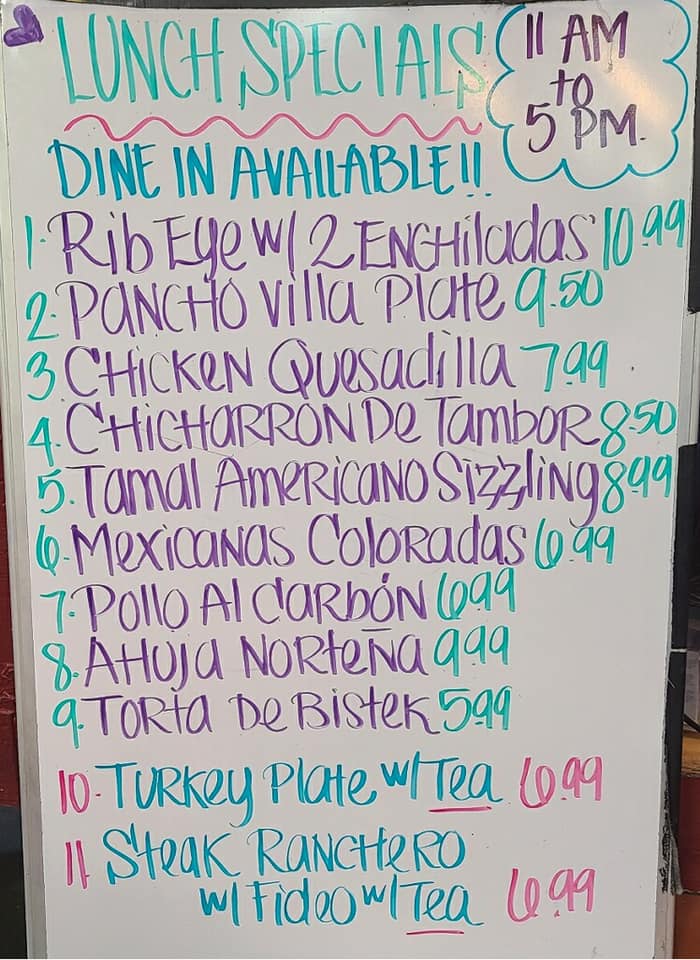 LUNCH SPECIALS
11 AM
to
5 PM.
DINE IN AVAILABLE!!
1. Rib Eye w/ 2 ENCHiladas 10.99
2. PANCHO Villa Plate 9.50
3. CHICKEN Quesadilla 7.99
4. CHICHARRON De TamboR 8.50
5. Tamal AmeRICANO Sizzling 8.99
6. MexicaNas ColoRadas 6.99
7. Pollo Al CaRbÓN 6.99
8. AHUJa NoRteÑa 9.99
9. TORta De Bistek 5.99
10. TuRKey Plate w/ Tea 6.99
11 Steak RANCHeRO
w/ Fideo w/ Tea 6.99